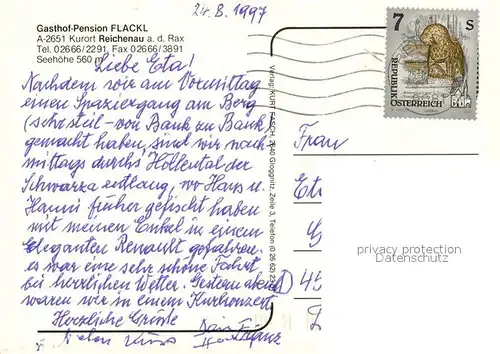 24.8.1997
Gasthof-Pension FLACKL
A-2651 Kurort Reichenau a. d. Rax
Tel. 02666/2291, Fax 02666/3891
Seehöhe 560 m
Liebe Eta!
Nachdem wir am Vormittag
einen Spaziergang am Berg
(sehr steil - von Bank zu Bank,
gemacht haben, sind wir nach-
mittags durchs Höllental der
Schwarza entlang, wo Hans u.
Hanni früher gefischt haben
mit meinen Enkel in einem
eleganten Renault gefahren.
es war eine sehr schöne Fahrt
bei herrlichen Wetter. Gestern abend
waren wir in einem Kurkonzert
Herzliche Grüße
Verlag: KURT FASCH, 2640 Gloggnitz, Zeile 3, Telefon (0 26 62)
7 S
REPUBLIK
ÖSTERREICH
Frau
Et
D 45
privacy protection
Datenschutz